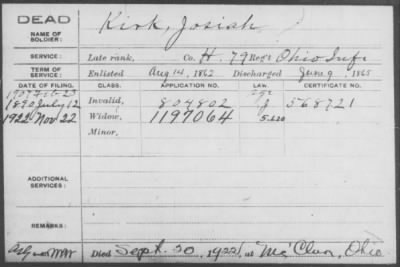 DEAD
NAME OF SOLDIER: Kirk, Josiah
SERVICE: Late rank, Co. H. 79 Reg't Ohio Inf.
TERM OF SERVICE: Enlisted Aug 14, 1862 Discharged June 9, 1865
DATE OF FILING. CLASS. APPLICATION NO. LAW. CERTIFICATE NO.
1907 Feb 23 Age
1890 July 12 Invalid, 804802 J 568721
1922 Nov 22 Widow, 1197064
Minor,
ADDITIONAL SERVICES:
REMARKS:
Died Sept. 20, 1922, at Mc Clure, Ohio